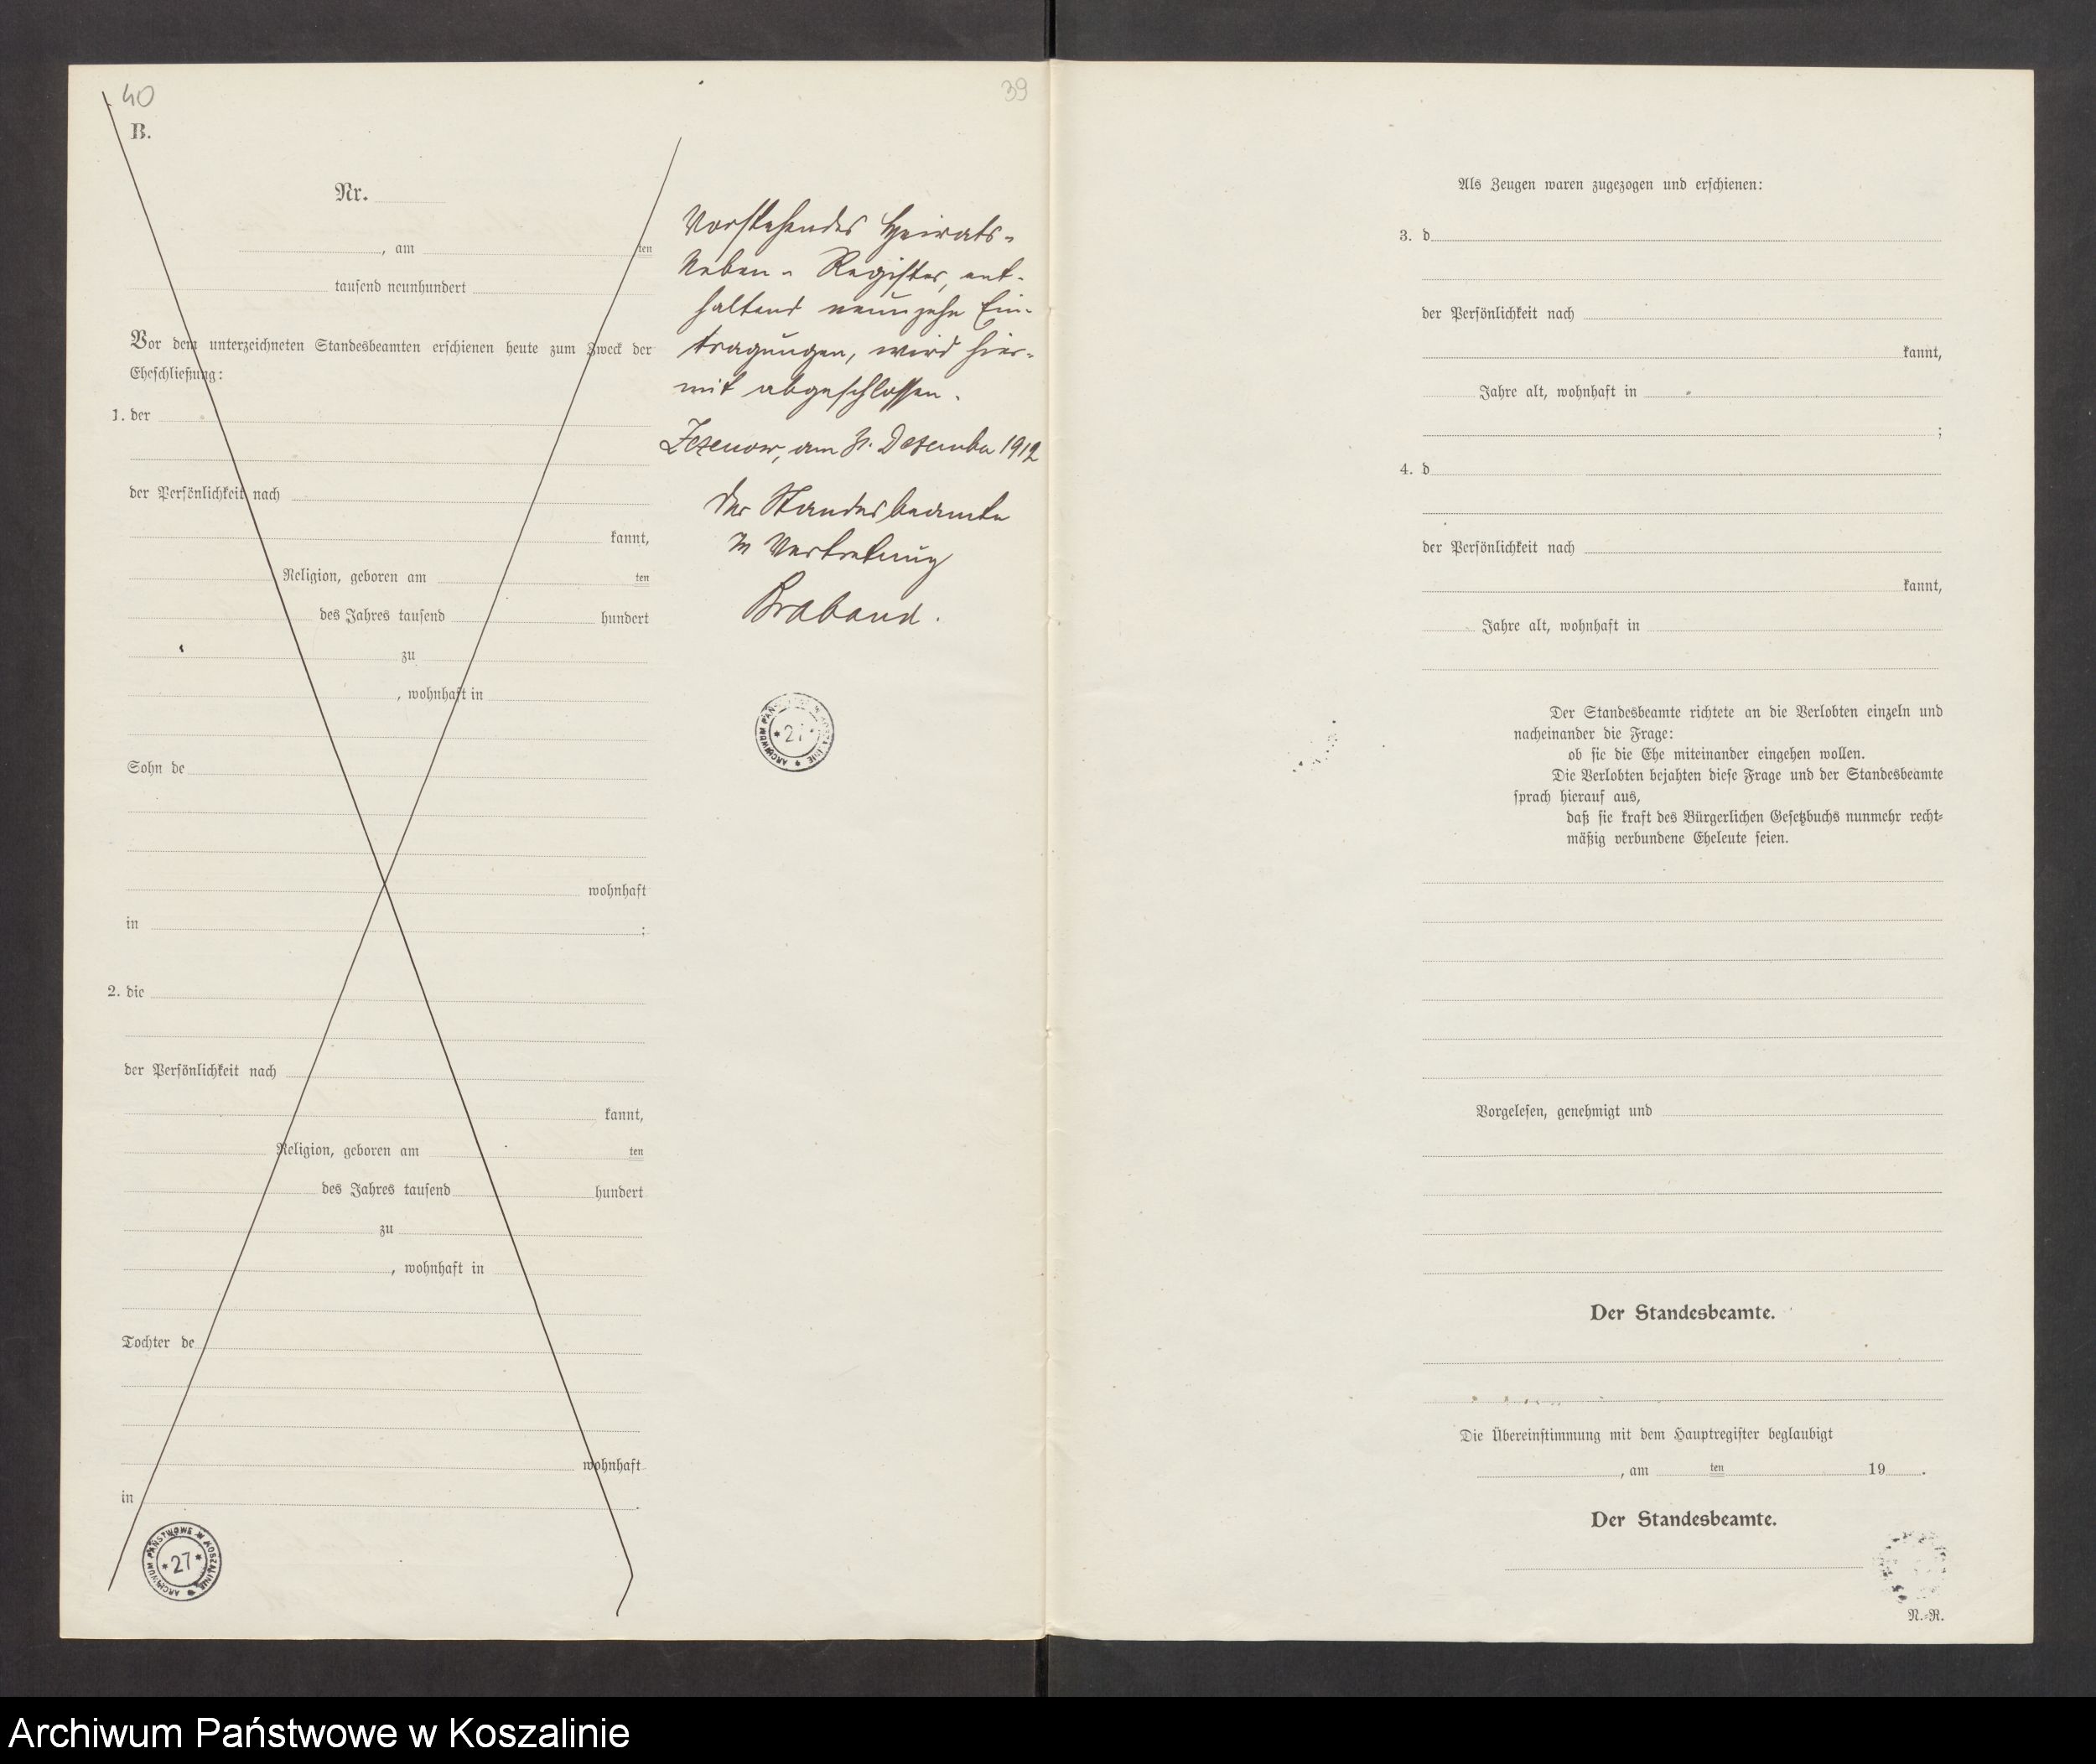 40
39
B.
Nr.
, am ten
tausend neunhundert
Vor dem unterzeichneten Standesbeamten erschienen heute zum Zweck der
Eheschließung:
1. der
der Persönlichkeit nach
kannt,
Religion, geboren am ten
des Jahres tausend hundert
zu
, wohnhaft in
Sohn de
wohnhaft
in ;
2. die
der Persönlichkeit nach
kannt,
Religion, geboren am ten
des Jahres tausend hundert
zu
, wohnhaft in
Tochter de
wohnhaft
in .
ARCHIWUM PAŃSTWOWE W KOSZALINIE
*27*
Vorstehendes Heirats-
Neben-Register, ent-
haltend neunzehn Ein-
tragungen, wird hier-
mit abgeschlossen.
Zezenow, am 31. Dezember 1912
Der Standesbeamte
In Vertretung
Braband.
ARCHIWUM PAŃSTWOWE W KOSZALINIE
*27*
Als Zeugen waren zugezogen und erschienen:
3. d
der Persönlichkeit nach
kannt,
Jahre alt, wohnhaft in
;
4. d
der Persönlichkeit nach
kannt,
Jahre alt, wohnhaft in
Der Standesbeamte richtete an die Verlobten einzeln und
nacheinander die Frage:
ob sie die Ehe miteinander eingehen wollen.
Die Verlobten bejahten diese Frage und der Standesbeamte
sprach hierauf aus,
daß sie kraft des Bürgerlichen Gesetzbuchs nunmehr recht-
mäßig verbundene Eheleute seien.
Vorgelesen, genehmigt und
Der Standesbeamte.
Die Übereinstimmung mit dem Hauptregister beglaubigt
, am ten 19 .
Der Standesbeamte.
N.-R.
Archiwum Państwowe w Koszalinie